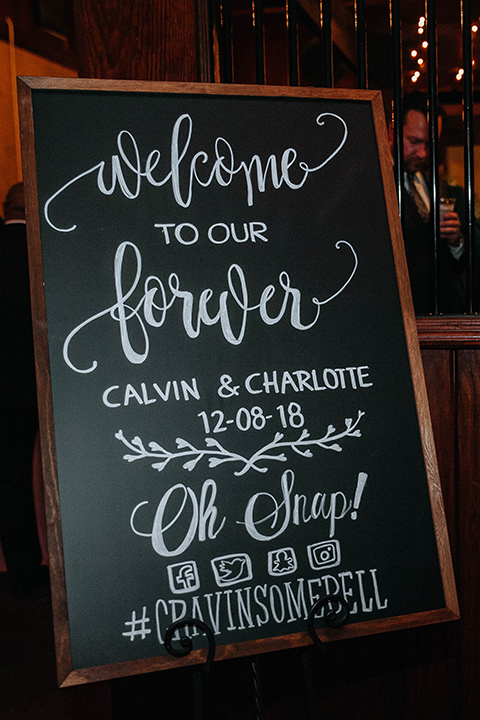 welcome
TO OUR
forever
CALVIN & CHARLOTTE
12-08-18
Oh Snap!
#CRAVINSOMEPELL